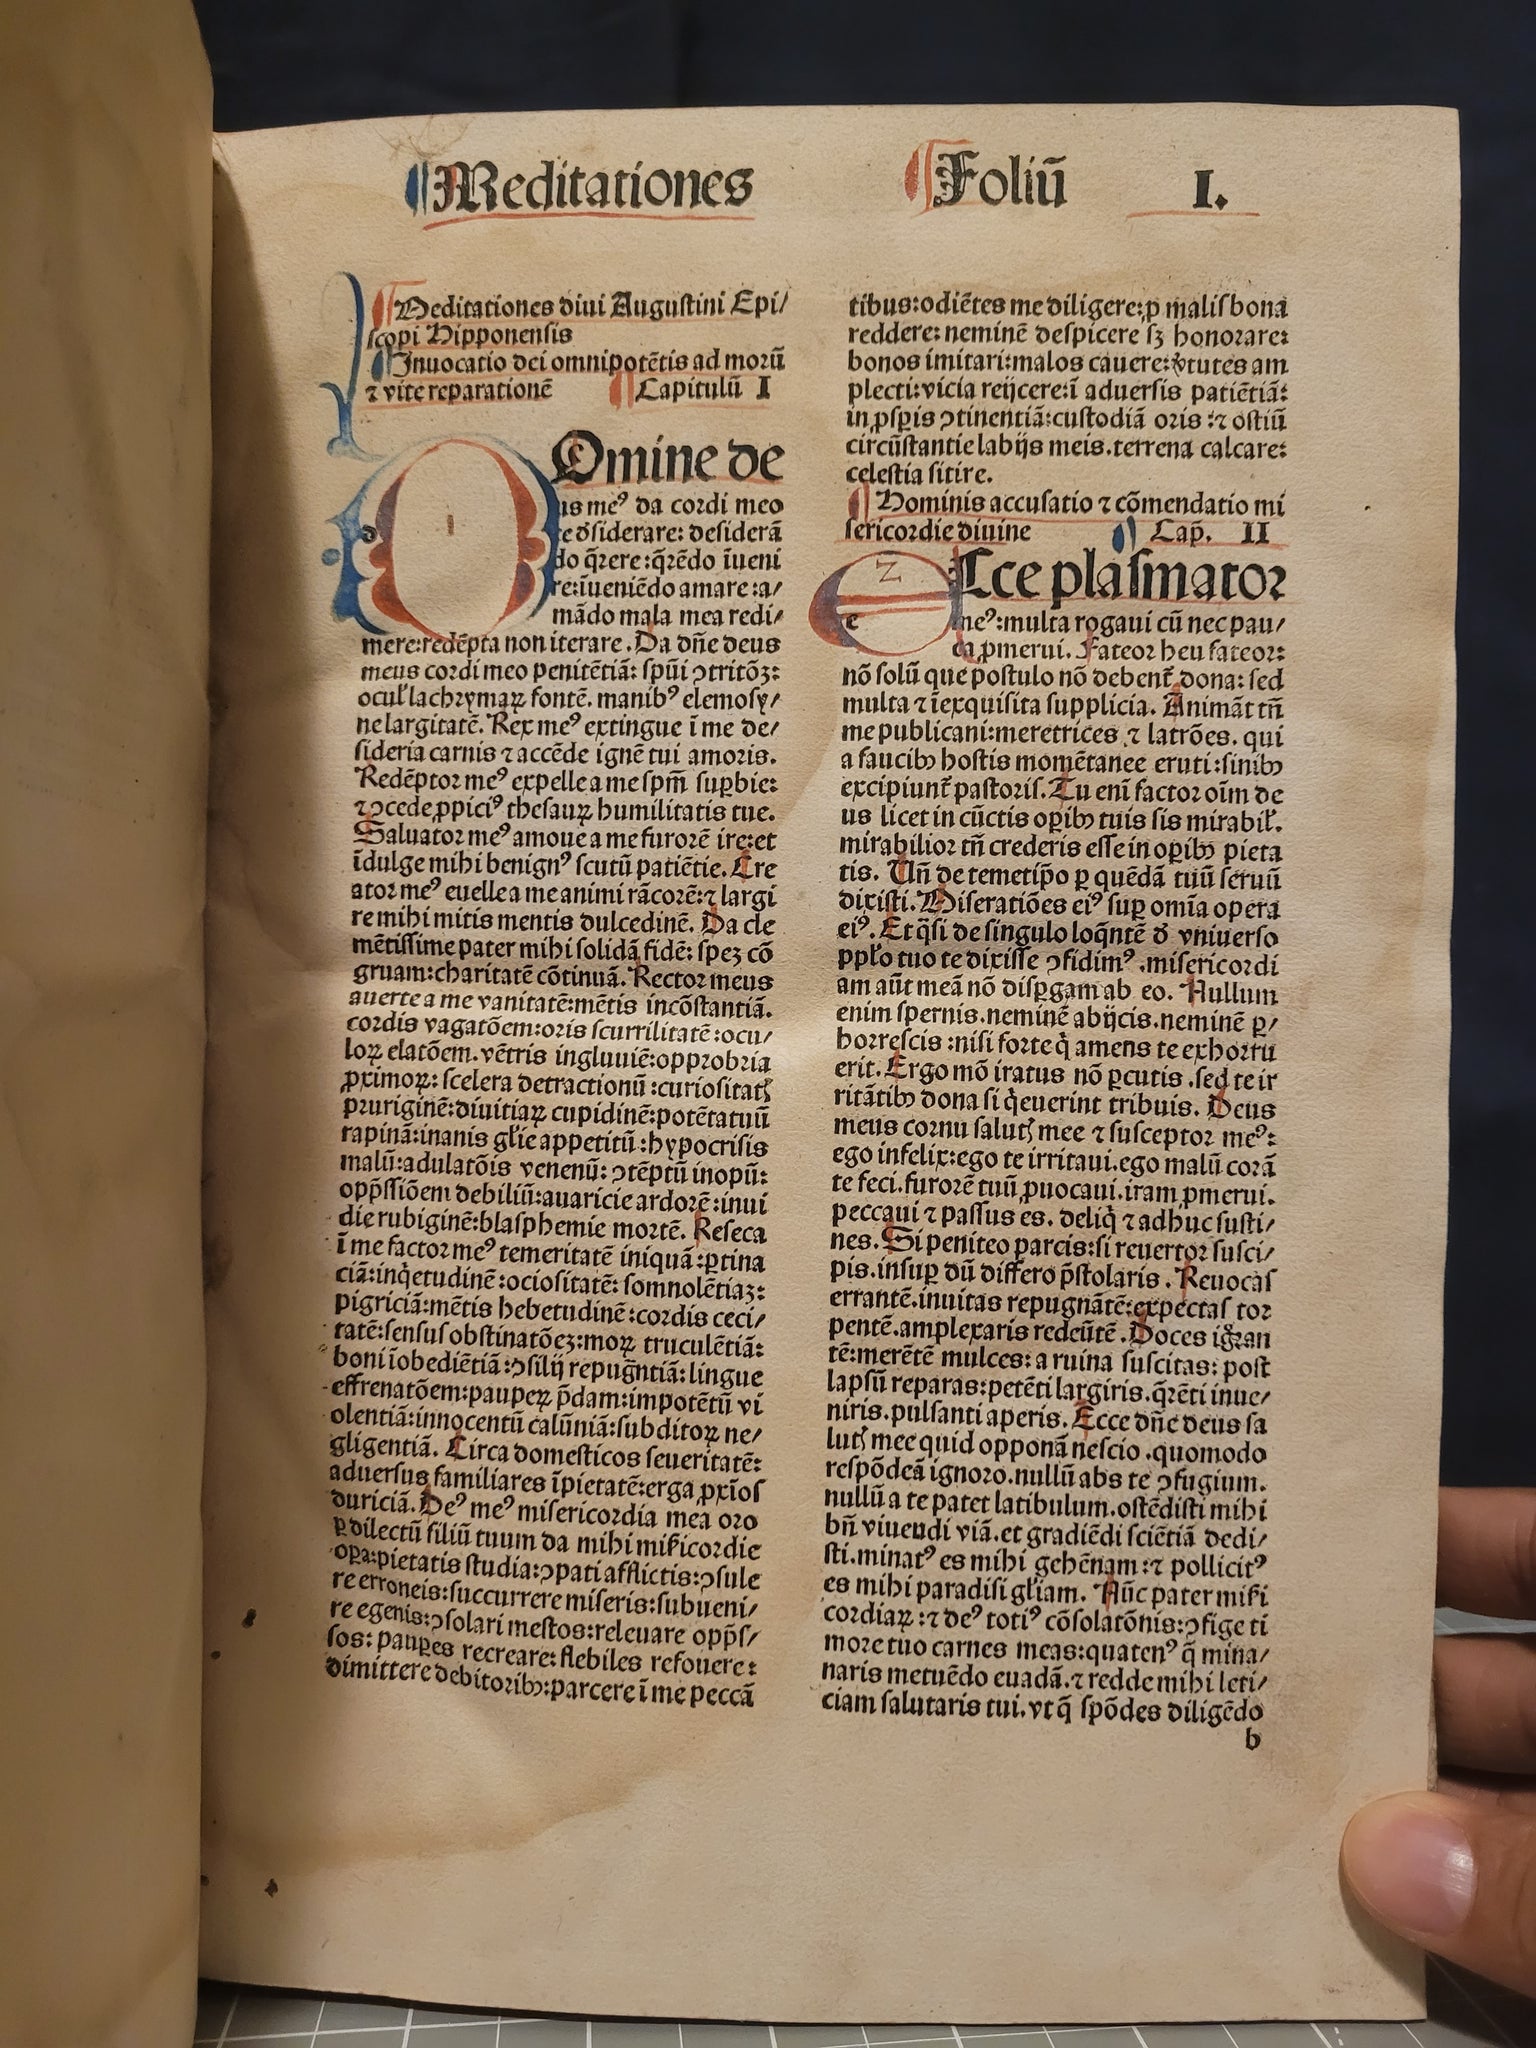 Meditationes
Foliū I.
Meditationes diui Augustini Epi/
scopi Hipponensis
Inuocatio dei omnipotētis ad morū
⁊ vite reparationē Capitulū I
Domine de
us meꝰ da cordi meo
te d̄siderare: desiderā
do q̄rere: q̄rēdo īueni
re: īueniēdo amare: a/
mādo mala mea redi/
mere: redēpta non iterare. Da dn̄e deus
meus cordi meo penitētiā: spūi ꝯtritōꝫ:
ocul̛ lachrymaꝝ fontē. manibꝰ elemosy/
ne largitatē. Rex meꝰ extingue ī me de/
sideria carnis ⁊ accēde ignē tui amoris.
Redēptor meꝰ expelle a me spm̄ suꝑbie:
⁊ ꝯcede ꝓpiciꝰ thesauꝝ humilitatis tue.
Saluator meꝰ amoue a me furorē ire: et
īdulge mihi benignꝰ scutū patiētie. Cre
ator meꝰ euelle a me animi rācorē: ⁊ largi
re mihi mitis mentis dulcedinē. Da cle
mētissime pater mihi solidā fidē: speꝫ cō
gruam: charitatē cōtinuā. Rector meus
auerte a me vanitatē: mētis incōstantiā.
cordis vagatōem: oris scurrilitatē: ocu/
loꝝ elatōem. vētris ingluuiē: opprobria
ꝓximoꝝ: scelera detractionū: curiositatꝭ
pruriginē: diuitiaꝝ cupidinē: potētatuū
rapinā: inanis gl̄ie appetitū: hypocrisis
malū: adulatōis venenū: ꝯtēptū inopū:
opp̄ssiōem debiliū: auaricie ardorē: inui
die rubiginē: blasphemie mortē. Reseca
ī me factor meꝰ temeritatē iniquā: ꝑtina
ciā: inq̇etudinē: ociositatē: somnolētiaꝫ:
pigriciā: mētis hebetudinē: cordis ceci/
tatē: sensus obstinatōeꝫ: moꝝ truculētiā:
boni īobediētiā: ꝯsilij repuḡntiā: lingue
effrenatōem: paupeꝝ p̄dam: impotētū vi
olentiā: innocentū calūniā: subditoꝝ ne/
gligentiā. Circa domesticos seueritatē:
aduersus familiares īpietatē: erga ꝓxīos
duriciā. Deꝰ meꝰ misericordia mea oro
ꝑ dilectū filiū tuum da mihi mīsericordie
oꝑa: pietatis studia: ꝯpati afflictis: ꝯsule
re erroneis: succurrere miseris: subueni/
re egenis: ꝯsolari mestos: releuare opp̄s/
sos: pauꝑes recreare: flebiles refouere:
dimittere debitoribꝫ: parcere ī me peccā
tibus: odiētes me diligere: ꝓ malis bona
reddere: neminē despicere sꝫ honorare:
bonos imitari: malos cauere: v̄tutes am
plecti: vicia reijcere: ī aduersis patiētiā:
in ꝓsꝑis ꝯtinentiā: custodiā oris: ⁊ ostiū
circūstantie labijs meis. terrena calcare:
celestia sitire.
Hominis accusatio ⁊ cōmendatio mi
sericordie diuine Cap̄. II
Ecce plasmator
meꝰ: multa rogaui cū nec pau/
ca ꝓmerui. Fateor heu fateor:
nō solū que postulo nō debent̄ dona: sed
multa ⁊ īexquisita supplicia. Animāt tn̄
me publicani: meretrices ⁊ latrōes. qui
a faucibꝫ hostis momētanee eruti: sinibꝫ
excipiunt̄ pastoris. Tu enī factor oīm de
us licet in cūctis oꝑibꝫ tuis sis mirabil̛.
mirabilior tn̄ crederis esse in oꝑibꝫ pieta
tis. Un̄ de temetip̄o ꝑ quēdā tuū seruū
dixisti. Miseratiōes eiꝰ suꝑ omīa opera
eiꝰ. Et q̄si de singulo loq̄ntē d̄ vniuerso
ppl̄o tuo te dixisse ꝯfidimꝰ. misericordi
am aūt meā nō disꝑgam ab eo. Nullum
enim spernis. neminē abijcis. neminē ꝑ/
horrescis: nisi forte q̇ amens te exhorru
erit. Ergo mō iratus nō ꝑcutis. sed te ir
ritātibꝫ dona si q̇euerint tribuis. Deus
meus cornu salutꝭ mee ⁊ susceptor meꝰ:
ego infelix: ego te irritaui. ego malū corā
te feci. furorē tuū ꝓuocaui. iram ꝓmerui.
peccaui ⁊ passus es. deliq̇ ⁊ adhuc susti/
nes. Si peniteo parcis: si reuertor susci/
pis. insuꝑ dū differo p̄stolaris. Reuocas
errantē. inuitas repugnātē: expectas tor
pentē. amplexaris redeūtē. Doces igran
tē: merētē mulces: a ruina suscitas: post
lapsū reparas: petēti largiris. q̄rēti inue/
niris. pulsanti aperis. Ecce dn̄e deus sa
lutꝭ mee quid opponā nescio. quomodo
respōdeā ignoro. nullū abs te ꝯfugium.
nullū a te patet latibulum. ostēdisti mihi
bn̄ viuendi viā. et gradiēdi sciētiā dedi/
sti. minatꝰ es mihi gehēnam: ⁊ pollicitꝰ
es mihi paradisi gl̄iam. Nūc pater mīsri
cordiaꝝ: ⁊ deꝰ totiꝰ cōsolatōnis: ꝯfige ti
more tuo carnes meas: quatenꝰ q̄ mina/
naris metuēdo euadā. ⁊ redde mihi leti/
ciam salutaris tui. vt q̄ spōdes diligēdo
b